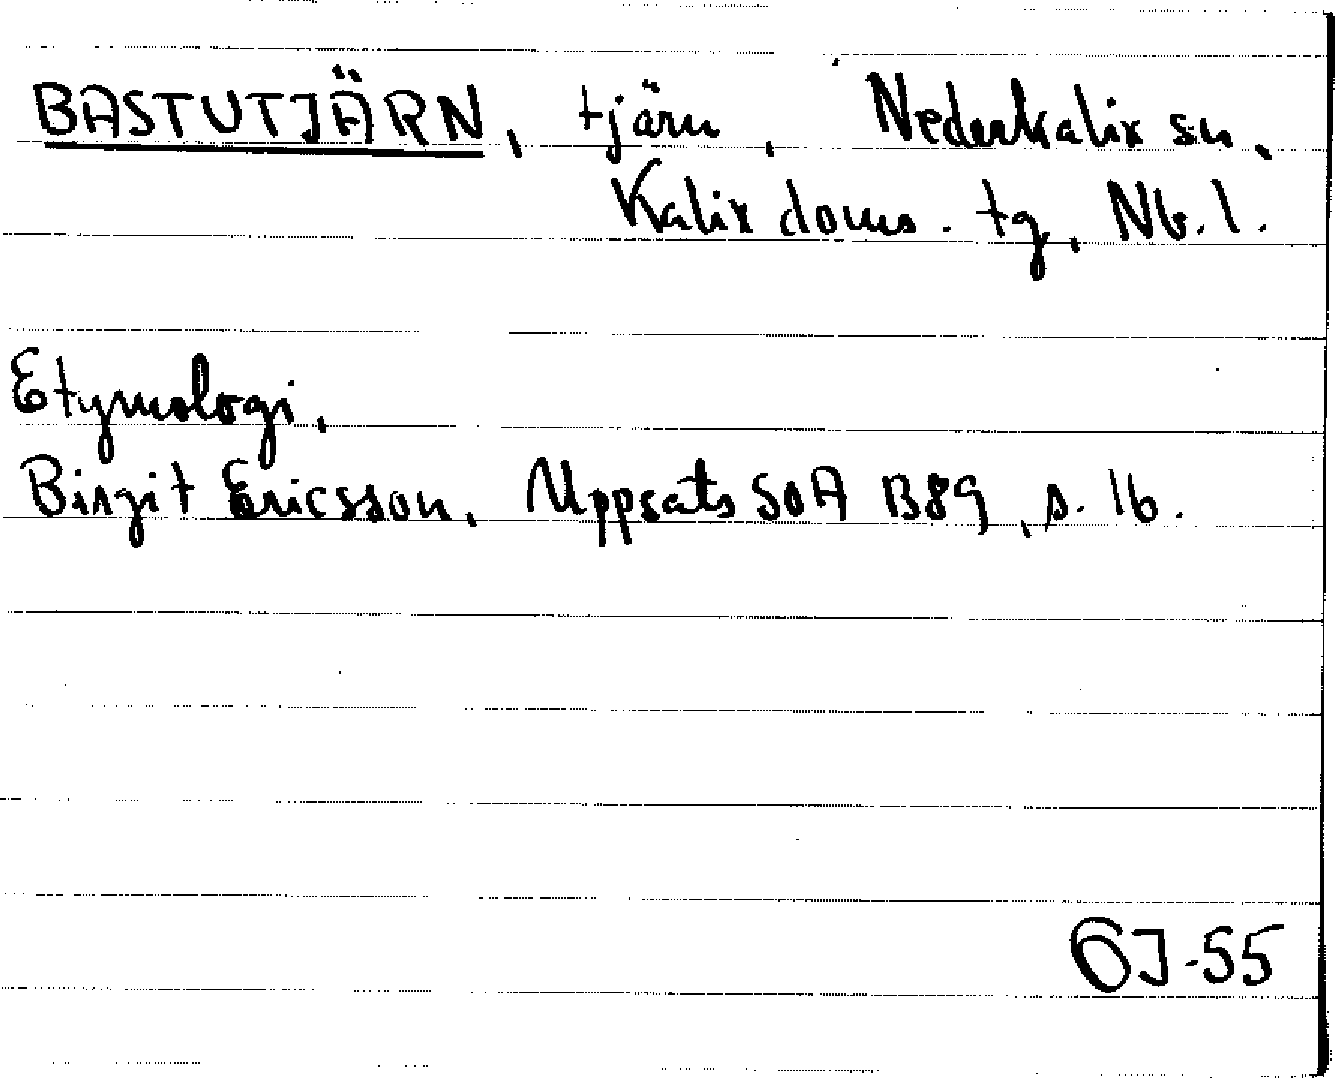 BASTUTJÄRN, tjärn, Nederkalix sn,
Kalix doms. tg, Nb. l.
Etymologi,
Birgit Ericsson, Uppsats SOA B89, s. 16.
GJ-55